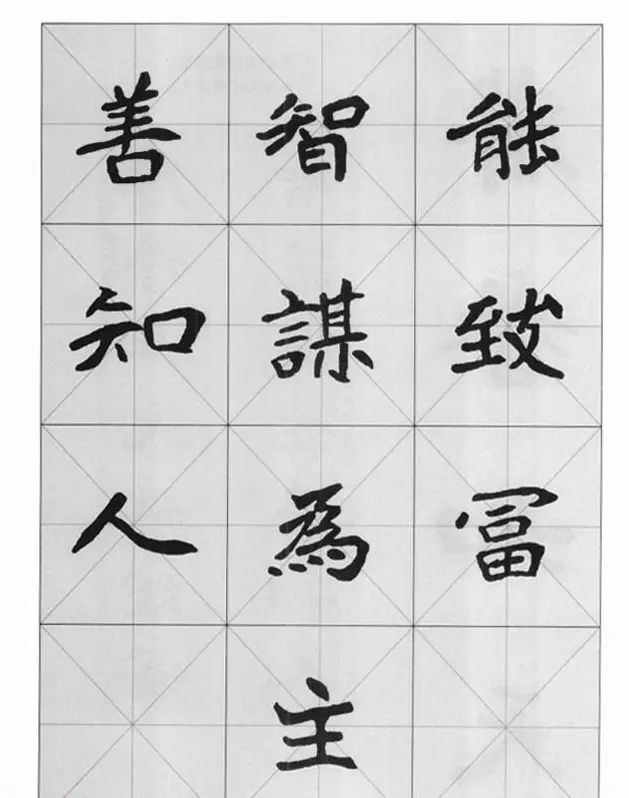 能致冨
智謀為主
善知人